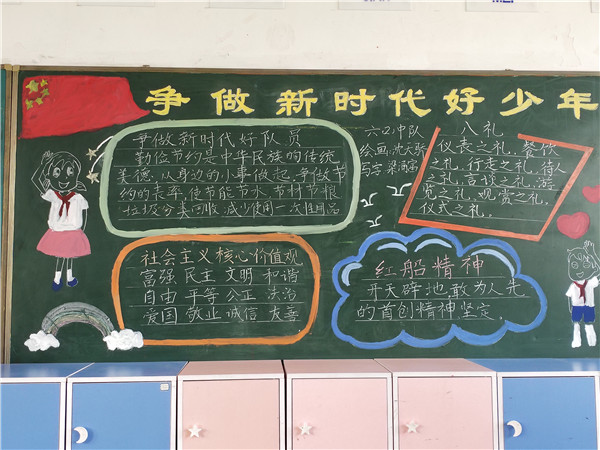 争做新时代好少年
争做新时代好队员
勤俭节约是中华民族的传统
美德,从身边的小事做起,争做节
约的表率,使节能节水节材节粮
垃圾分类回收,减少使用一次性用品
六(2)中队
绘画:沈天骄
写字:梁
八礼
仪表之礼,餐饮
之礼,行走之礼,待人
之礼,言谈之礼,游
览之礼,观赏之礼,
仪式之礼。
社会主义核心价值观
富强 民主 文明 和谐
自由 平等 公正 法治
爱国 敬业 诚信 友善
红船精神
开天辟地,敢为人先
的首创精神坚定、